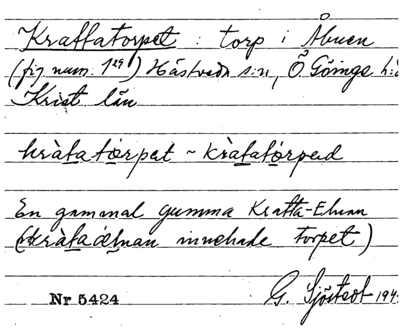 Krattatorpet : torp i Åbuen
(fig num. 1²⁹) Hästveda s:n, Ö Göinge h:d
Krist län
kràtatórpat ~ kràtatórpad
En gammal gumma Kratta-Elnan
(kràtaælnan innehade torpet)
Nr 5424 G. Sjöstedt 194